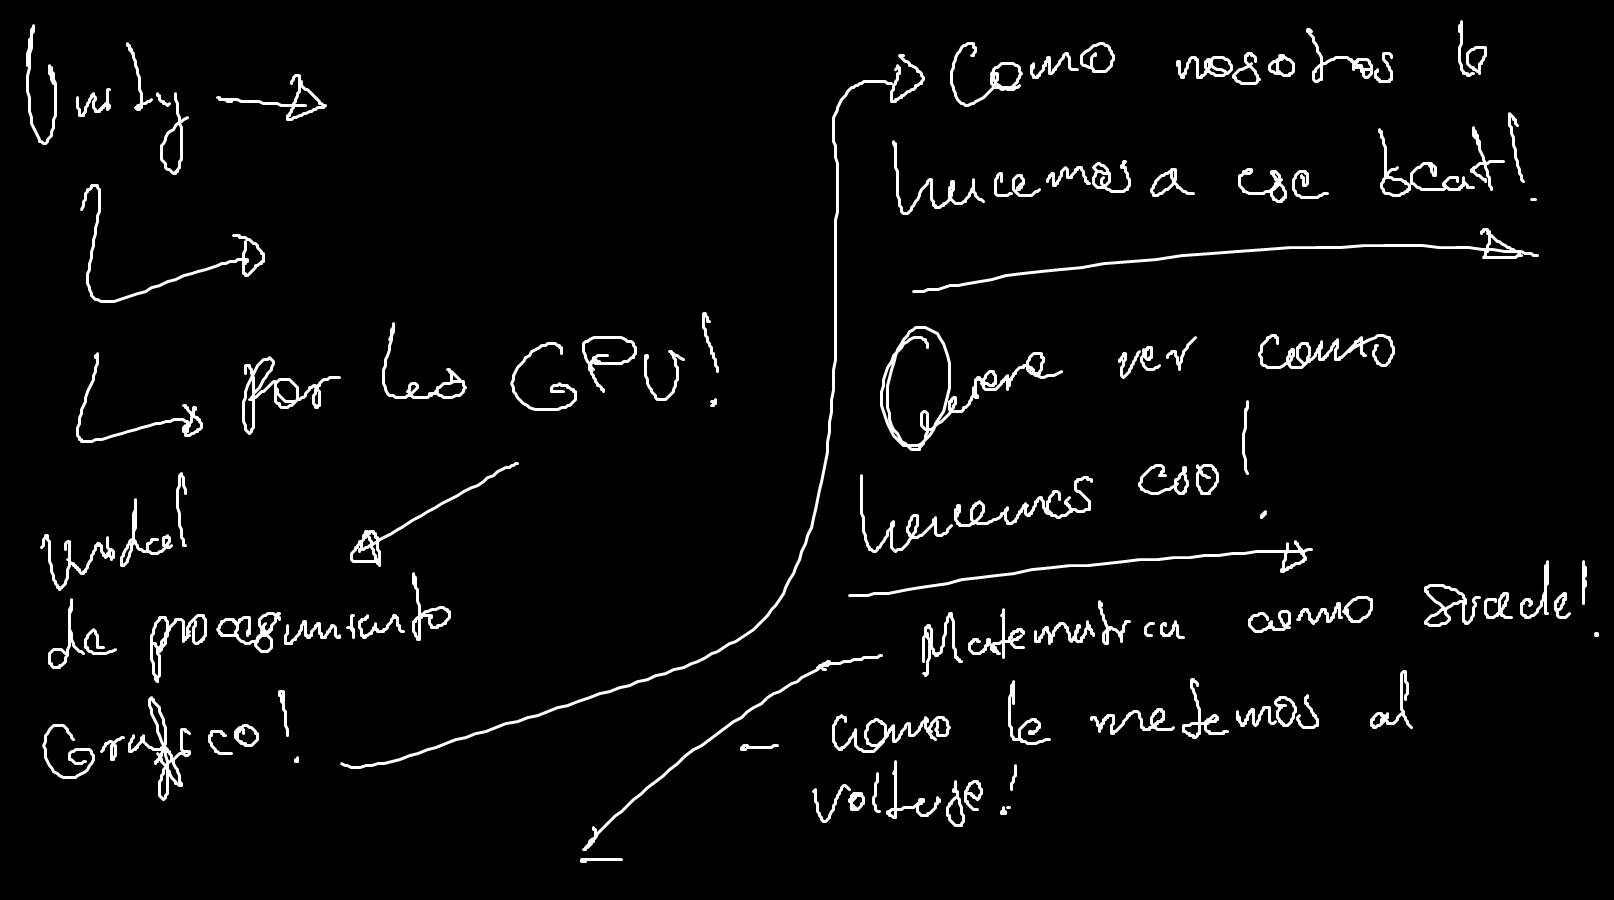 Unity
por las GPU!
unidad
de procesamiento
Grafico!
Como nosotros lo
hacemos a ese beat!
Quiero ver como
hacemos eso!
Matematica como sucede!
como le metemos al
voltage!